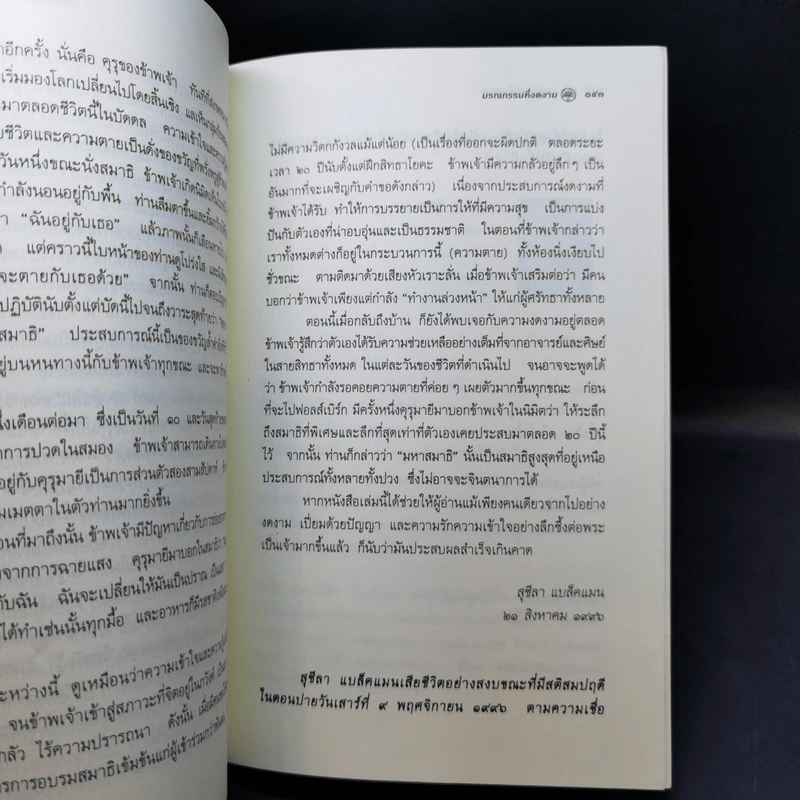 าอีกครั้ง นั่นคือ คุรุของข้าพเจ้า
เริ่มมองโลกเปลี่ยนไปโดยสิ้นเชิง
มาตลอดชีวิตนี้ในบัดดล ความเข้าใจและ
ชีวิตและความตายเป็นดั่งของขวัญ
วันหนึ่งขณะนั่งสมาธิ ข้าพเจ้าเกิดนิมิต
กำลังนอนอยู่กับพื้น ท่านลืมตาขึ้นและ
า “ฉันอยู่กับเธอ” แล้วภาพนั้นก็เลือน
แต่คราวนี้ใบหน้าของท่านดูโปร่งใส
จะตายกับเธอด้วย” จากนั้น ท่านก็
ปฏิบัตินับตั้งแต่บัดนี้ไปจนถึงวาระสุดท้าย
สมาธิ” ประสบการณ์นี้เป็นของขวัญล้ำค่า
อยู่บนหนทางนี้กับข้าพเจ้าทุกขณะ และ
นึ่งเดือนต่อมา ซึ่งเป็นวันที่ ๑๐ และวันสุดท้าย
การปวดในสมอง ข้าพเจ้าสามารถเดินทาง
อยู่กับคุรุมายีเป็นการส่วนตัวสองสามสัปดาห์
มเมตตาในตัวท่านมากยิ่งขึ้น
อนที่มาถึงนั้น ข้าพเจ้ามีปัญหาเกี่ยวกับการ
งจากการฉายแสง คุรุมายีมาบอกในสมาธิ
กับฉัน ฉันจะเปลี่ยนให้มันเป็นปราณ
ได้ทำเช่นนั้นทุกมื้อ และอาหารก็มีรสชาติ
ะหว่างนี้ ดูเหมือนว่าความเข้าใจและ
จนข้าพเจ้าเข้าสู่สภาวะที่จิตอยู่ในภวังค์
กลัว ไร้ความปรารถนา ดังนั้น
การอบรมสมาธิเข้มข้นแก่ผู้เข้าร่วม
มรณกรรมที่งดงาม ๑๙๓
ไม่มีความวิตกกังวลแม้แต่น้อย (เป็นเรื่องที่ออกจะผิดปกติ ตลอดระยะ
เวลา ๒๐ ปีนับตั้งแต่ฝึกสิทธาโยคะ ข้าพเจ้ามีความกลัวอยู่ลึกๆ เป็น
อันมากที่จะเผชิญกับคำขอดังกล่าว) เนื่องจากประสบการณ์งดงามที่
ข้าพเจ้าได้รับ ทำให้การบรรยายเป็นการให้ที่มีความสุข เป็นการแบ่ง
ปันกับตัวเองที่น่าอบอุ่นและเป็นธรรมชาติ ในตอนที่ข้าพเจ้ากล่าวว่า
เราทั้งหมดต่างก็อยู่ในกระบวนการนี้ (ความตาย) ทั้งห้องนิ่งเงียบไป
ชั่วขณะ ตามติดมาด้วยเสียงหัวเราะลั่น เมื่อข้าพเจ้าเสริมต่อว่า มีคน
บอกว่าข้าพเจ้าเพียงแต่กำลัง “ทำงานล่วงหน้า” ให้แก่ผู้ศรัทธาทั้งหลาย
ตอนนี้เมื่อกลับถึงบ้าน ก็ยังได้พบเจอกับความงดงามอยู่ตลอด
ข้าพเจ้ารู้สึกว่าตัวเองได้รับความช่วยเหลืออย่างเต็มที่จากอาจารย์และศิษย์
ในสายสิทธาทั้งหมด ในแต่ละวันของชีวิตที่ดำเนินไป จนอาจจะพูดได้
ว่า ข้าพเจ้ากำลังรอคอยความตายที่ค่อยๆ เผยตัวมากขึ้นทุกขณะ ก่อน
ที่จะไปฟอลส์เบิร์ก มีครั้งหนึ่งคุรุมายีมาบอกข้าพเจ้าในนิมิตว่า ให้ระลึก
ถึงสมาธิที่พิเศษและลึกที่สุดเท่าที่ตัวเองเคยประสบมาตลอด ๒๐ ปีนี้
ไว้ จากนั้น ท่านก็กล่าวว่า “มหาสมาธิ” นั้นเป็นสมาธิสูงสุดที่อยู่เหนือ
ประสบการณ์ทั้งหลายทั้งปวง ซึ่งไม่อาจจะจินตนาการได้
หากหนังสือเล่มนี้ได้ช่วยให้ผู้อ่านแม้เพียงคนเดียวจากไปอย่าง
งดงาม เปี่ยมด้วยปัญญา และความรักความเข้าใจอย่างลึกซึ้งต่อพระ
เป็นเจ้ามากขึ้นแล้ว ก็นับว่ามันประสบผลสำเร็จเกินคาด
สุชีลา แบล็คแมน
๒๑ สิงหาคม ๑๙๙๖
สุชีลา แบล็คแมนเสียชีวิตอย่างสงบขณะที่มีสติสมปฤดี
ในตอนบ่ายวันเสาร์ที่ ๙ พฤศจิกายน ๑๙๙๖ ตามความเชื่อ